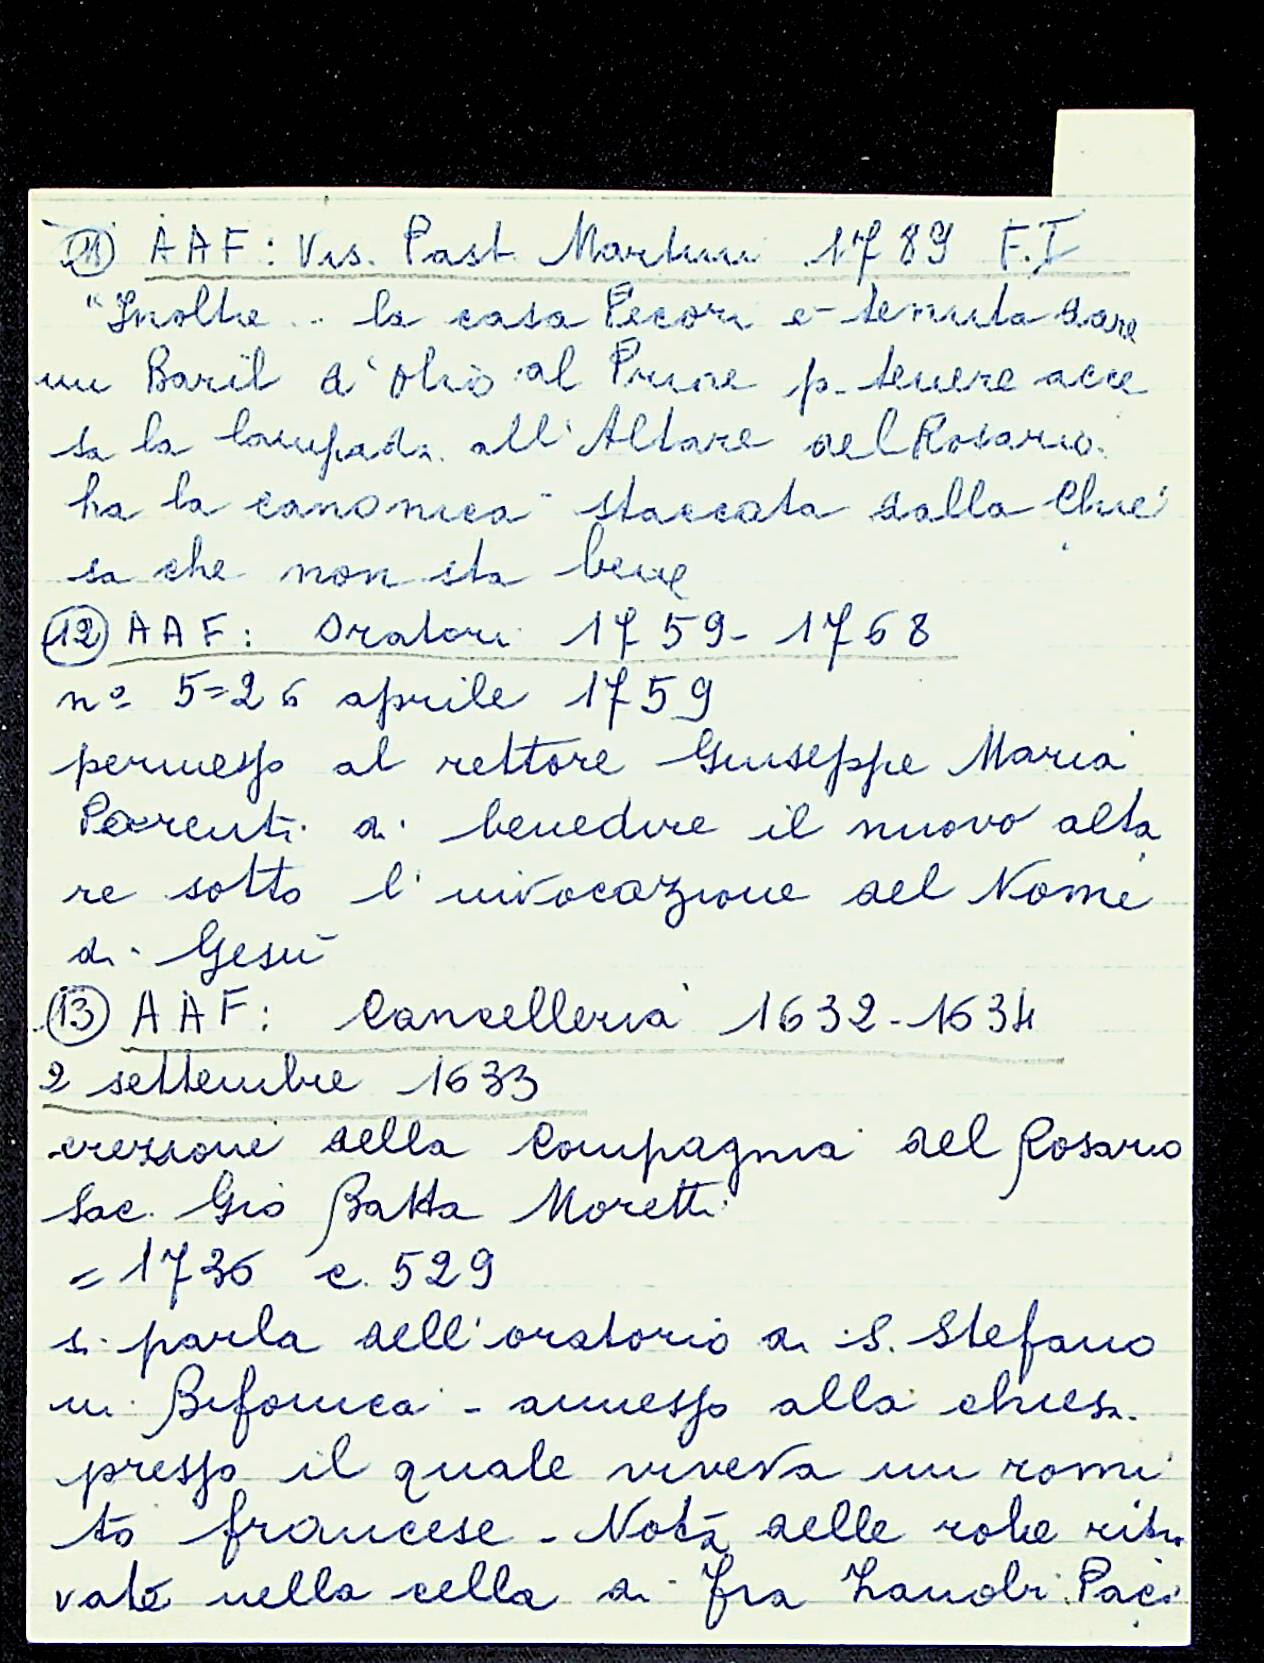 11) AAF: Vis. Past. Martini 1789 F.I
"Inoltre .. la casa Pecori e tenuta dare
un Baril d'olio al Priore p. tenere acce
sa la lampada all'Altare del Rosario.
ha la canonica staccata dalla Chie
sa che non sta bene
12) AAF: Oratori 1759-1768
nº 5=26 aprile 1759
permesso al rettore Giuseppe Maria
Parenti di benedire il nuovo alta
re sotto l'invocazione del Nome
di Gesù
13) AAF: Cancelleria 1632-1634
2 settembre 1633
erezione della Compagnia del Rosario
Sac. Giò Batta Moretti
= 1736 c. 529
si parla dell'oratorio di S. Stefano
in Bifonica - annesso alla chiesa
presso il quale viveva un romi
to francese - Nota delle robe ritro
vate nella cella di fra Zanobi Paci